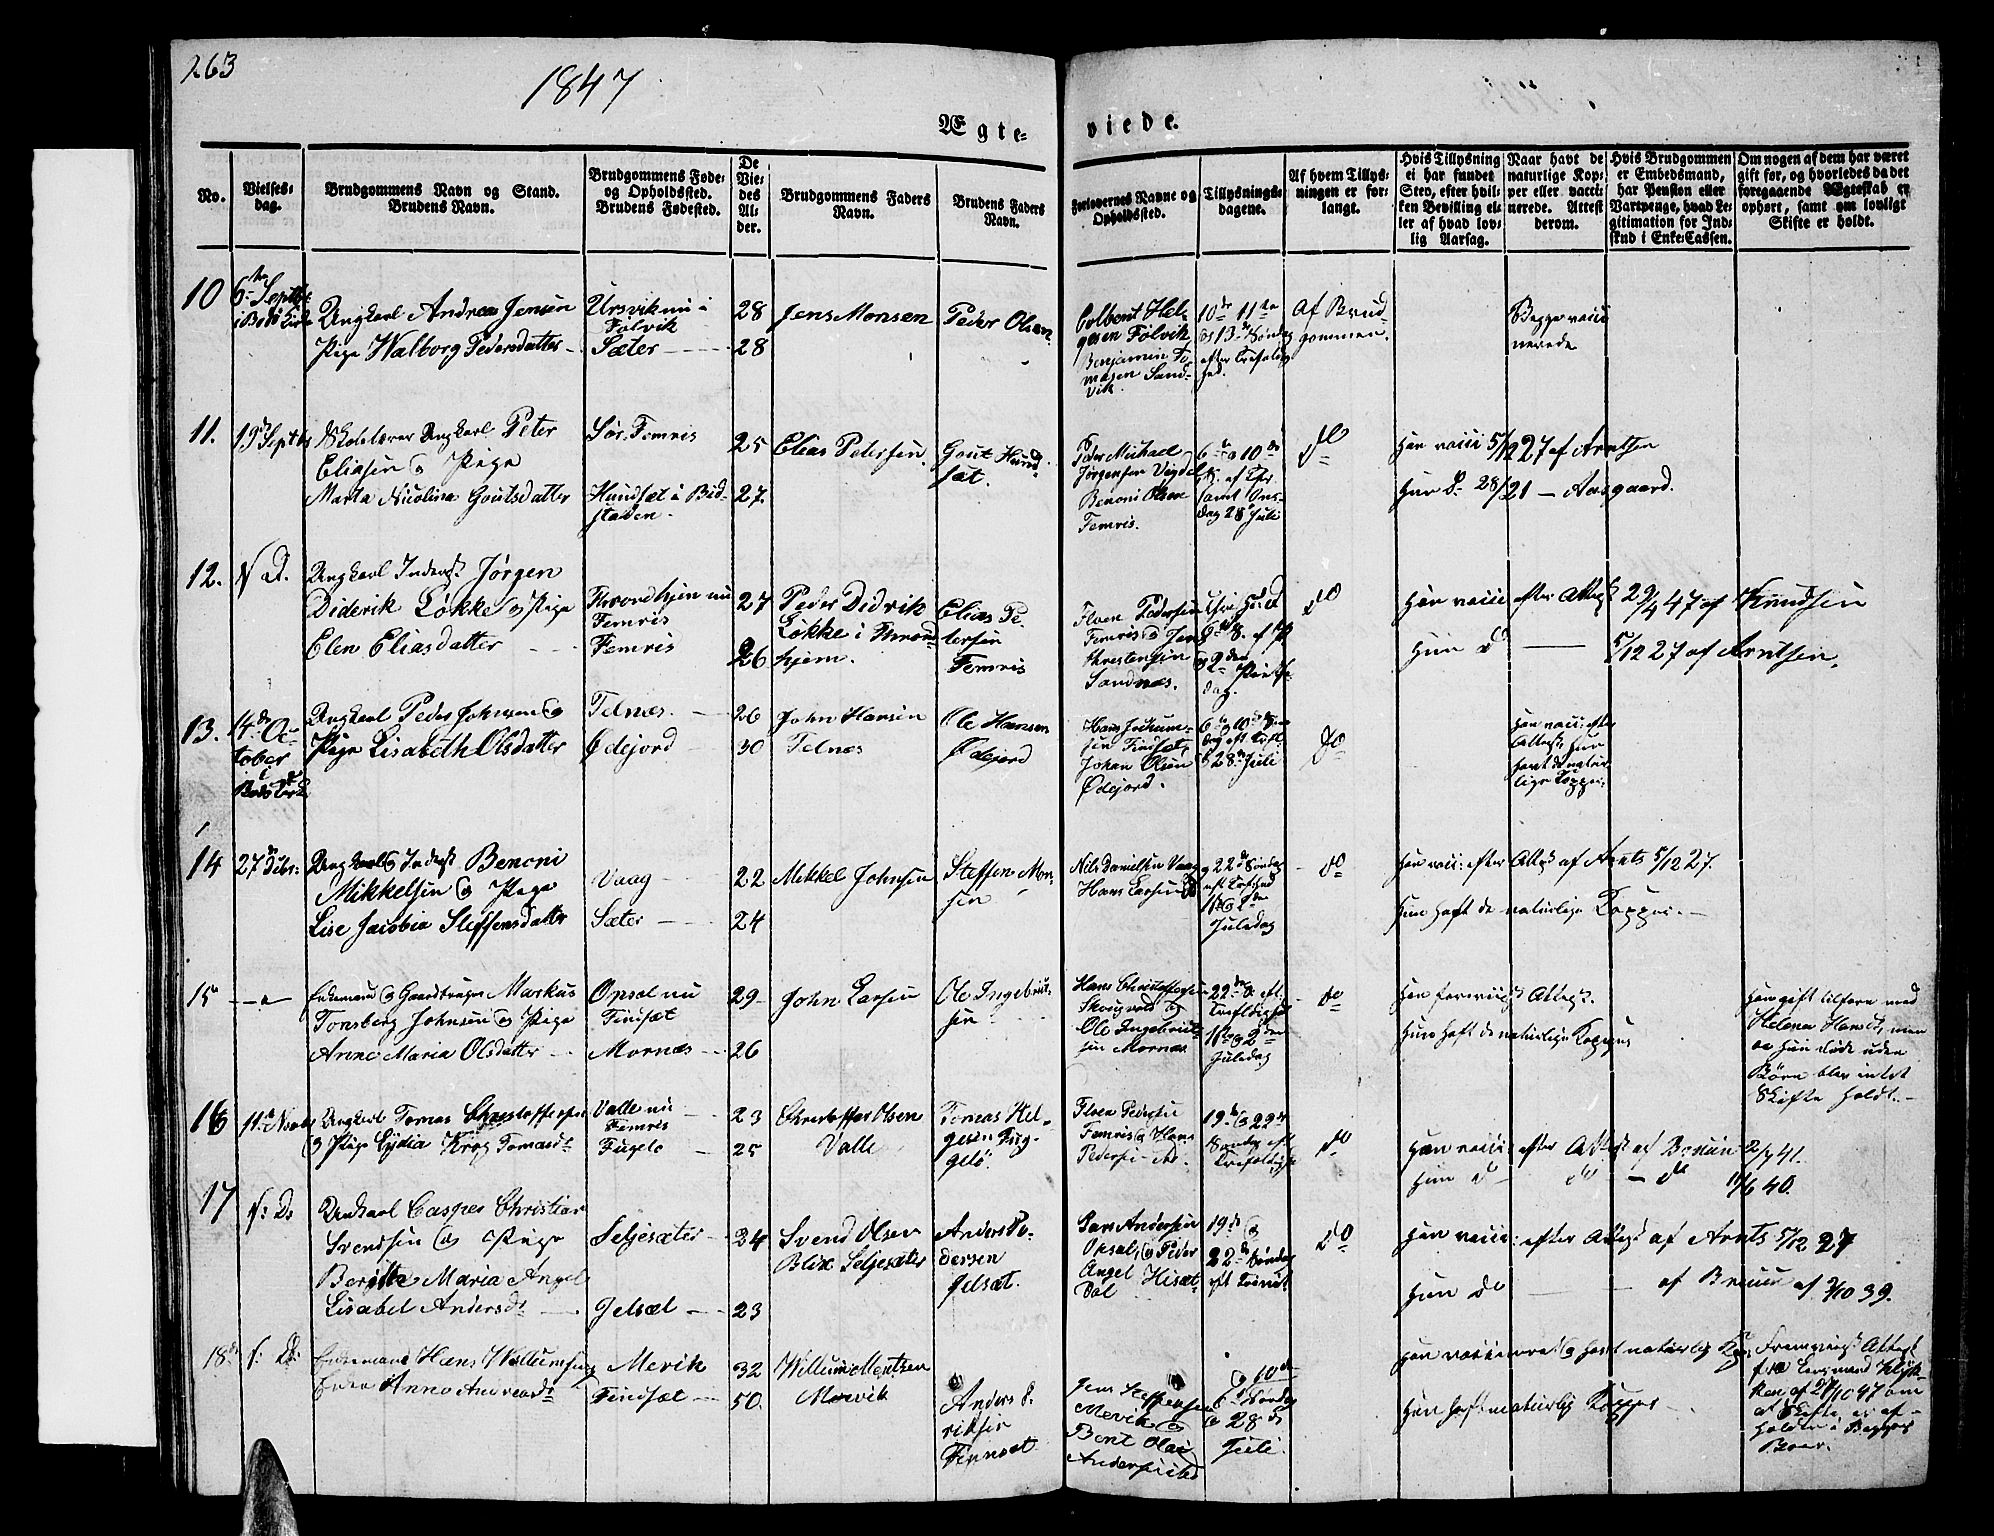 263
1847
Ægte-
viede.
No.
Vielses-
dag.
Brudgommens Navn og Stand.
Brudens Navn.
Brudgommens Føde-
og Opholdssted.
Brudens Fødested.
De
Vie-
des
Al-
der.
Brudgommens Faders
Navn.
Brudens Faders
Navn.
Forlovernes Navne og
Opholdssted.
Tillysnings-
dagene.
Af hvem Tillys-
ningen er for-
langt.
Hvis Tillysning
ei har fundet
Sted, efter hvil-
ken Bevilling el-
ler af hvad lov-
lig Aarsag.
Naar havt de
naturlige Kop-
per eller vacci-
nerede. Attest
derom.
Hvis Brudgommen
er Embedsmand,
har Pension eller
Vartpenge, hvad Le-
gitimation for Ind-
skud i Enke-Cassen.
Om nogen af dem har været
gift før, og hvorledes da det
foregaaende Ægteskab er
ophørt, samt om lovligt
Skifte er holdt.
10
6te Septbr
i Bodø Kirke
Ungkarl Andreas Jensen
Pige Walborg Pedersdatter
Ursvik nu i
Følvik
Sæter
28
28
Jens Monsen
Peder Olsen
Colbent Hel-
gesen Følvik
Benjamin To-
masen Sand-
vik.
10de 11te
og 13de Søndag
efter Trefoldig-
hed.
Af Brud-
gommen.
Begge vacci-
nerede
11.
19de Septbr
Skolelærer Ungkarl Peter
Eliasen og Pige
Marta Nicolina Goutsdatter
Sør. Femris
Hundsæt i Bod-
staden
25
27.
Elias Petersen
Gout Hund-
sæt.
Peder Michael
Jørgensen
Benoni Olsen
Femris.
6te og 10de
S. af Tr.
samt Ons-
dag 28de Juli
do
Han vacci 5/12 27 af Arntsen
Hun do 28/ 21 - Aasgaard.
12.
S. D.
Ungkarl Inderst Jørgen
Diderik Løkke og Pige
Elen Eliasdatter
Tronhjem nu
Femris
Femris
27
26
Peder Didrik
Løkke i Trond-
hjem.
Elias Pe-
tersen
Femris
Floen Pedersen
Femris og Jens
Chrestensen
Sandnæs.
og 2den Pintse-
dag.
do
Han vacci efter Attest 29/4 47 af Knudsen
Hun do 5/12 27 af Arntsen.
13.
14de Oc-
tober
i
Bodø Kirke
Ungkarl Peder Johnsen og
Pige Lisabeth Olsdatter
Telnæs.
Ødejord
26
30
John Hansen
Telnæs
Ole Hansen
Ødejord
Hans Jochum-
sen Findsæt,
Johan Olsen
Ødejord.
6te og 10de Søn-
dag eft Tref.
28de Juli
do
Han vacci: efter
Attest, Hun
havt de natur-
lige Kopper.
14
27de Debr:
Ungkarl og Inderst Benoni
Mikkelsen og Pige
Lise Jacobia Steffensdatter
Vaag
Sæter
22
24
Mekkel Johnsen
Steffen Mon-
sen
Nils Danielsen Vaag
Hans Larsen do
22de Søndag
eft Trefhed
1ste og 2den
Juledag
do
Han vacci: efter Attest af Arnts 5/12 27.
Hun haft de naturlige Kopper.
15
Enkemand og Gaardbruger Markus
Tonsberg Johnsen og Pige
Anne Maria Olsdatter
Opsal nu
Findsæt
Mornæs
29
26
John Larsen
Ole Ingebrigt-
sen
Hans Christoffersen
Skougvold og
Ole Ingebrigt-
sen Mornæs
22de S. eft.
Trefoldighed
1ste og 2den
Juledag
do
Han forevist Attest.
Hun haft de naturlige Kopper
Han gift tilforn med
Helena Hansdt, men
da hun døde uden
Børn blev intet
Skifte holdt.
16
11te Novbr
Ungkarl Tomas Christoffersen
og Pige Lydia Krog Tomasdt
Valle nu
Femris
Fugelø
23
25
Christoffer Olsen
Valle
Tomas Hel-
gesen Fug-
gelø.
Floen Pedersen
Femris og Hans
Pedersen do.
19de og 22de
Søndag eft
Trefoldighed
do
Han vacci: efter Attest af 2/7 41.
Hun do do - do 11/6 40.
17
S: D:
Ungkarl Casper Christian
Svendsen og Pige
Beritte Maria Angel
Lisabel Andersdt
Seljesæter
Jelsæt
24
23
Svend Olsen
Blix Seljesæter
Anders Pe-
dersen
Jelsæt.
Lars Andersen
Opsal, og Peder
Angel Hisæt-
dal
19de og
22de Søndag
eft Trinit
do
Han vacci: efter Attest af Arnts 5/12 27
Hun do af Breuer af 2/10 39.
18de
S: D:
Enkemand Hans Willumsen og
Enke Anne Andreasdt
Mervik
Findsæt
32
50.
Willum Mentsen
Mervik
Anders E-
riksen
Finnsæt
Jens Steffensen
Mervik og
Bent Olai
Andersen
og 10de
6te Søndag
og 28de
Juli
Han vaccineret og havt naturlig Kop.
Hun haft naturlig Kopper
Fremvist Attest
fra Lensmand
af 27/10 47 om
at Skifte er af-
holden i Begges
Boer.